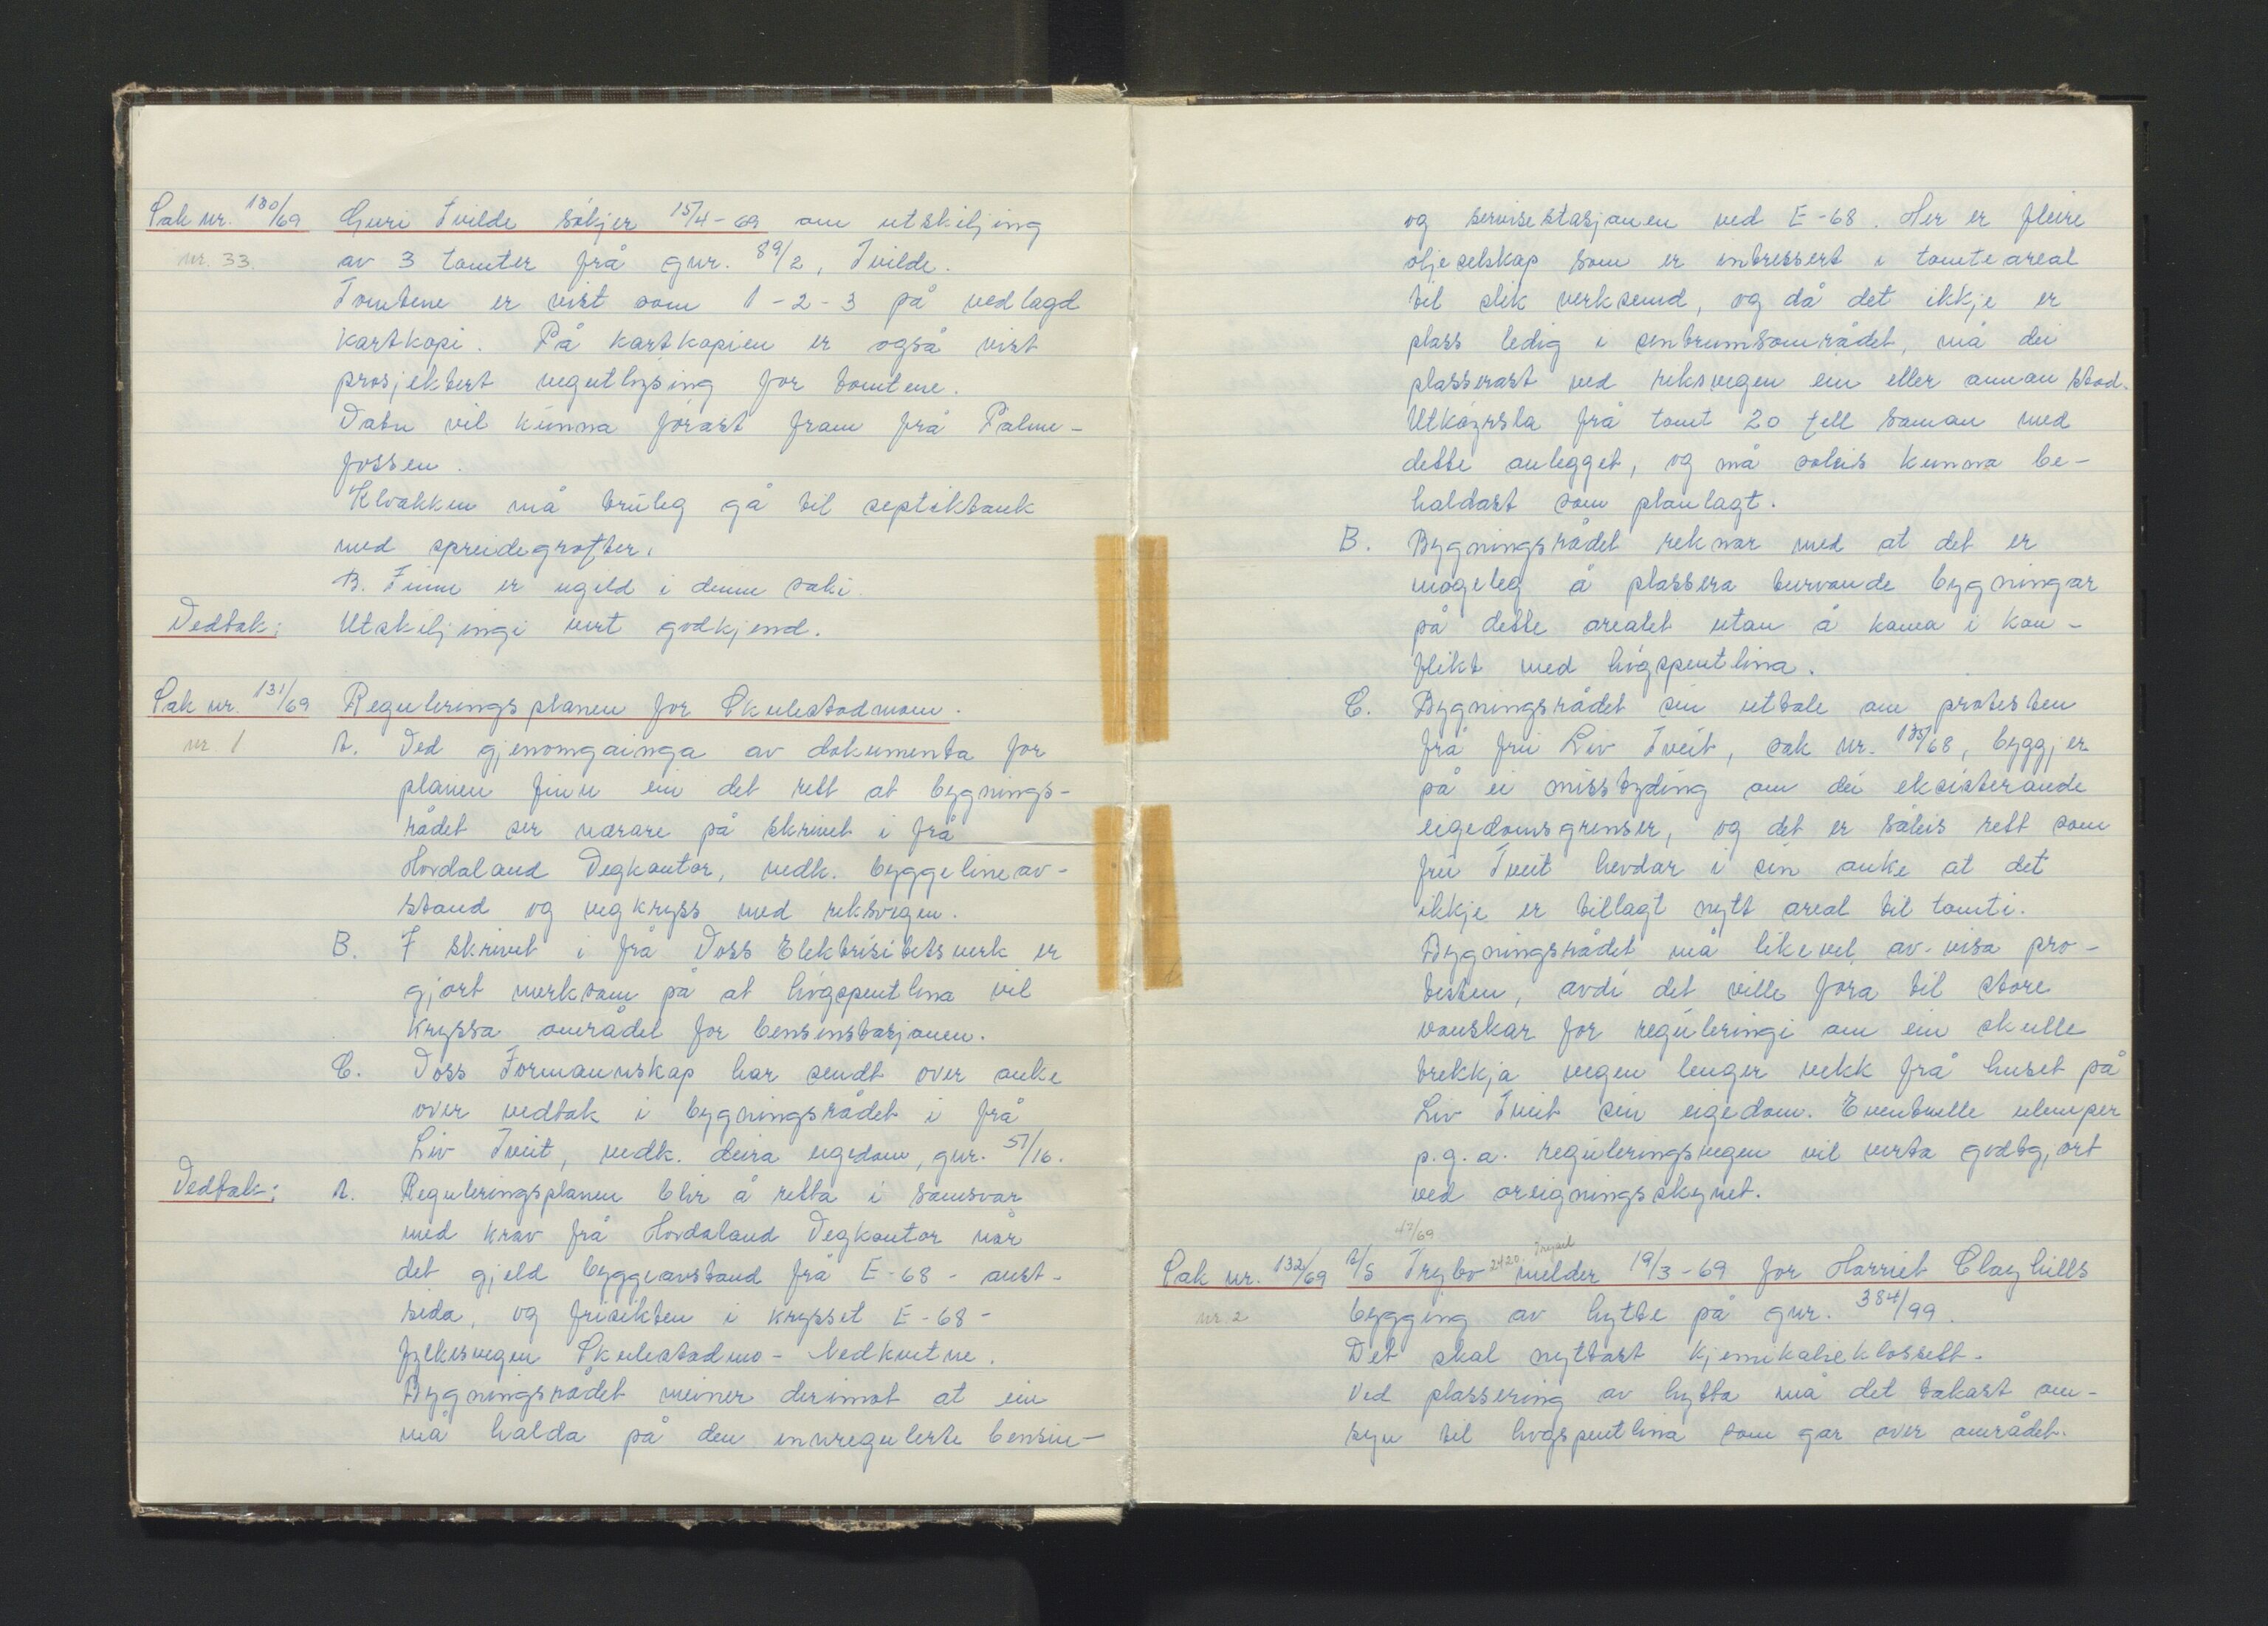 Sak nr. 130/69 Guri Tvilde søkjer 15/4-69 om utskiljing
nr. 33. av 3 tomter frå gnr. 89/2, Tvilde.
Tomtene er vist som 1-2-3 på vedlagd
kartkopi. På kartkopien er også vist
prosjektert vegutløysing for tomtene.
Vatn vil kunna førast fram frå Palme-
fossen.
Kloakken må truleg gå til septiktank
med spreidegrøfter.
B. Finne er ugild i denne saki.
Vedtak: Utskiljingi vert godkjend.
Sak nr. 131/69 Reguleringsplanen for Skulestadmoen.
nr 1 A. Ved gjenomgainga av dokumenta for
planen finn ein det rett at bygnings-
rådet ser nærare på skrivet i frå
Hordaland Vegkontor, vedk. byggelineav-
stand og vegkryss med riksvegen.
B. I skrivet i frå Voss Elektrisitetsverk er
gjort merksam på at høgspentlina vil
kryssa området for bensinstasjonen.
C. Voss Formannskap har sendt over anke
over vedtak i bygningsrådet i frå
Liv Tveit, vedk. deira eigedom, gnr. 51/16.
Vedtak: A. Reguleringsplanen blir å retta i samsvar
med krav frå Hordaland Vegkontor når
det gjeld byggeavstand frå E-68 - aust-
sida, og frisikten i krysset E-68 -
fylkesvegen Skulestadmo - Nedkvitne.
Bygningsrådet meiner derimot at ein
må halda på den innregulerte bensin-
og servisestasjonen ved E-68. Her er fleire
oljeselskap som er intressert i tomteareal
til slik verksemd, og då det ikkje er
plass ledig i sentrumsområdet, må dei
plasserast ved riksvegen ein eller annan stad.
Utkøyrsla frå tomt 20 fell saman med
dette anlegget, og må soleis kunna be-
haldast som planlagt.
B. Bygningsrådet reknar med at det er
mogeleg å plassera turvande bygningar
på dette arealet utan å koma i kon-
flikt med høgspentlina.
C. Bygningsrådet sin uttale om protesten
frå fru Liv Tveit, sak nr. 135/68, byggjer
på ei misstyding om dei eksisterande
eigedomsgrenser, og det er såleis rett som
fru Tveit hevdar i sin anke at det
ikkje er tillagt nytt areal til tomti.
Bygningsrådet må likevel av-visa pro-
testen, avdi det ville føra til store
vanskar for reguleringi om ein skulle
trekkja vegen lenger vekk frå huset på
Liv Tveit sin eigedom. Eventuelle ulemper
p.g.a. reguleringsvegen vil verta godtgjort
ved oreigningsskynet.
47/69
Sak nr. 132/69 A/S Trybo 2420 Trysil melder 19/3-69 for Harriet Clayhills
nr. 2 bygging av hytte på gnr. 384/99.
Det skal nyttast kjemikalieklosett.
Ved plassering av hytta må det takast om-
syn til høgspentlina som går over området.